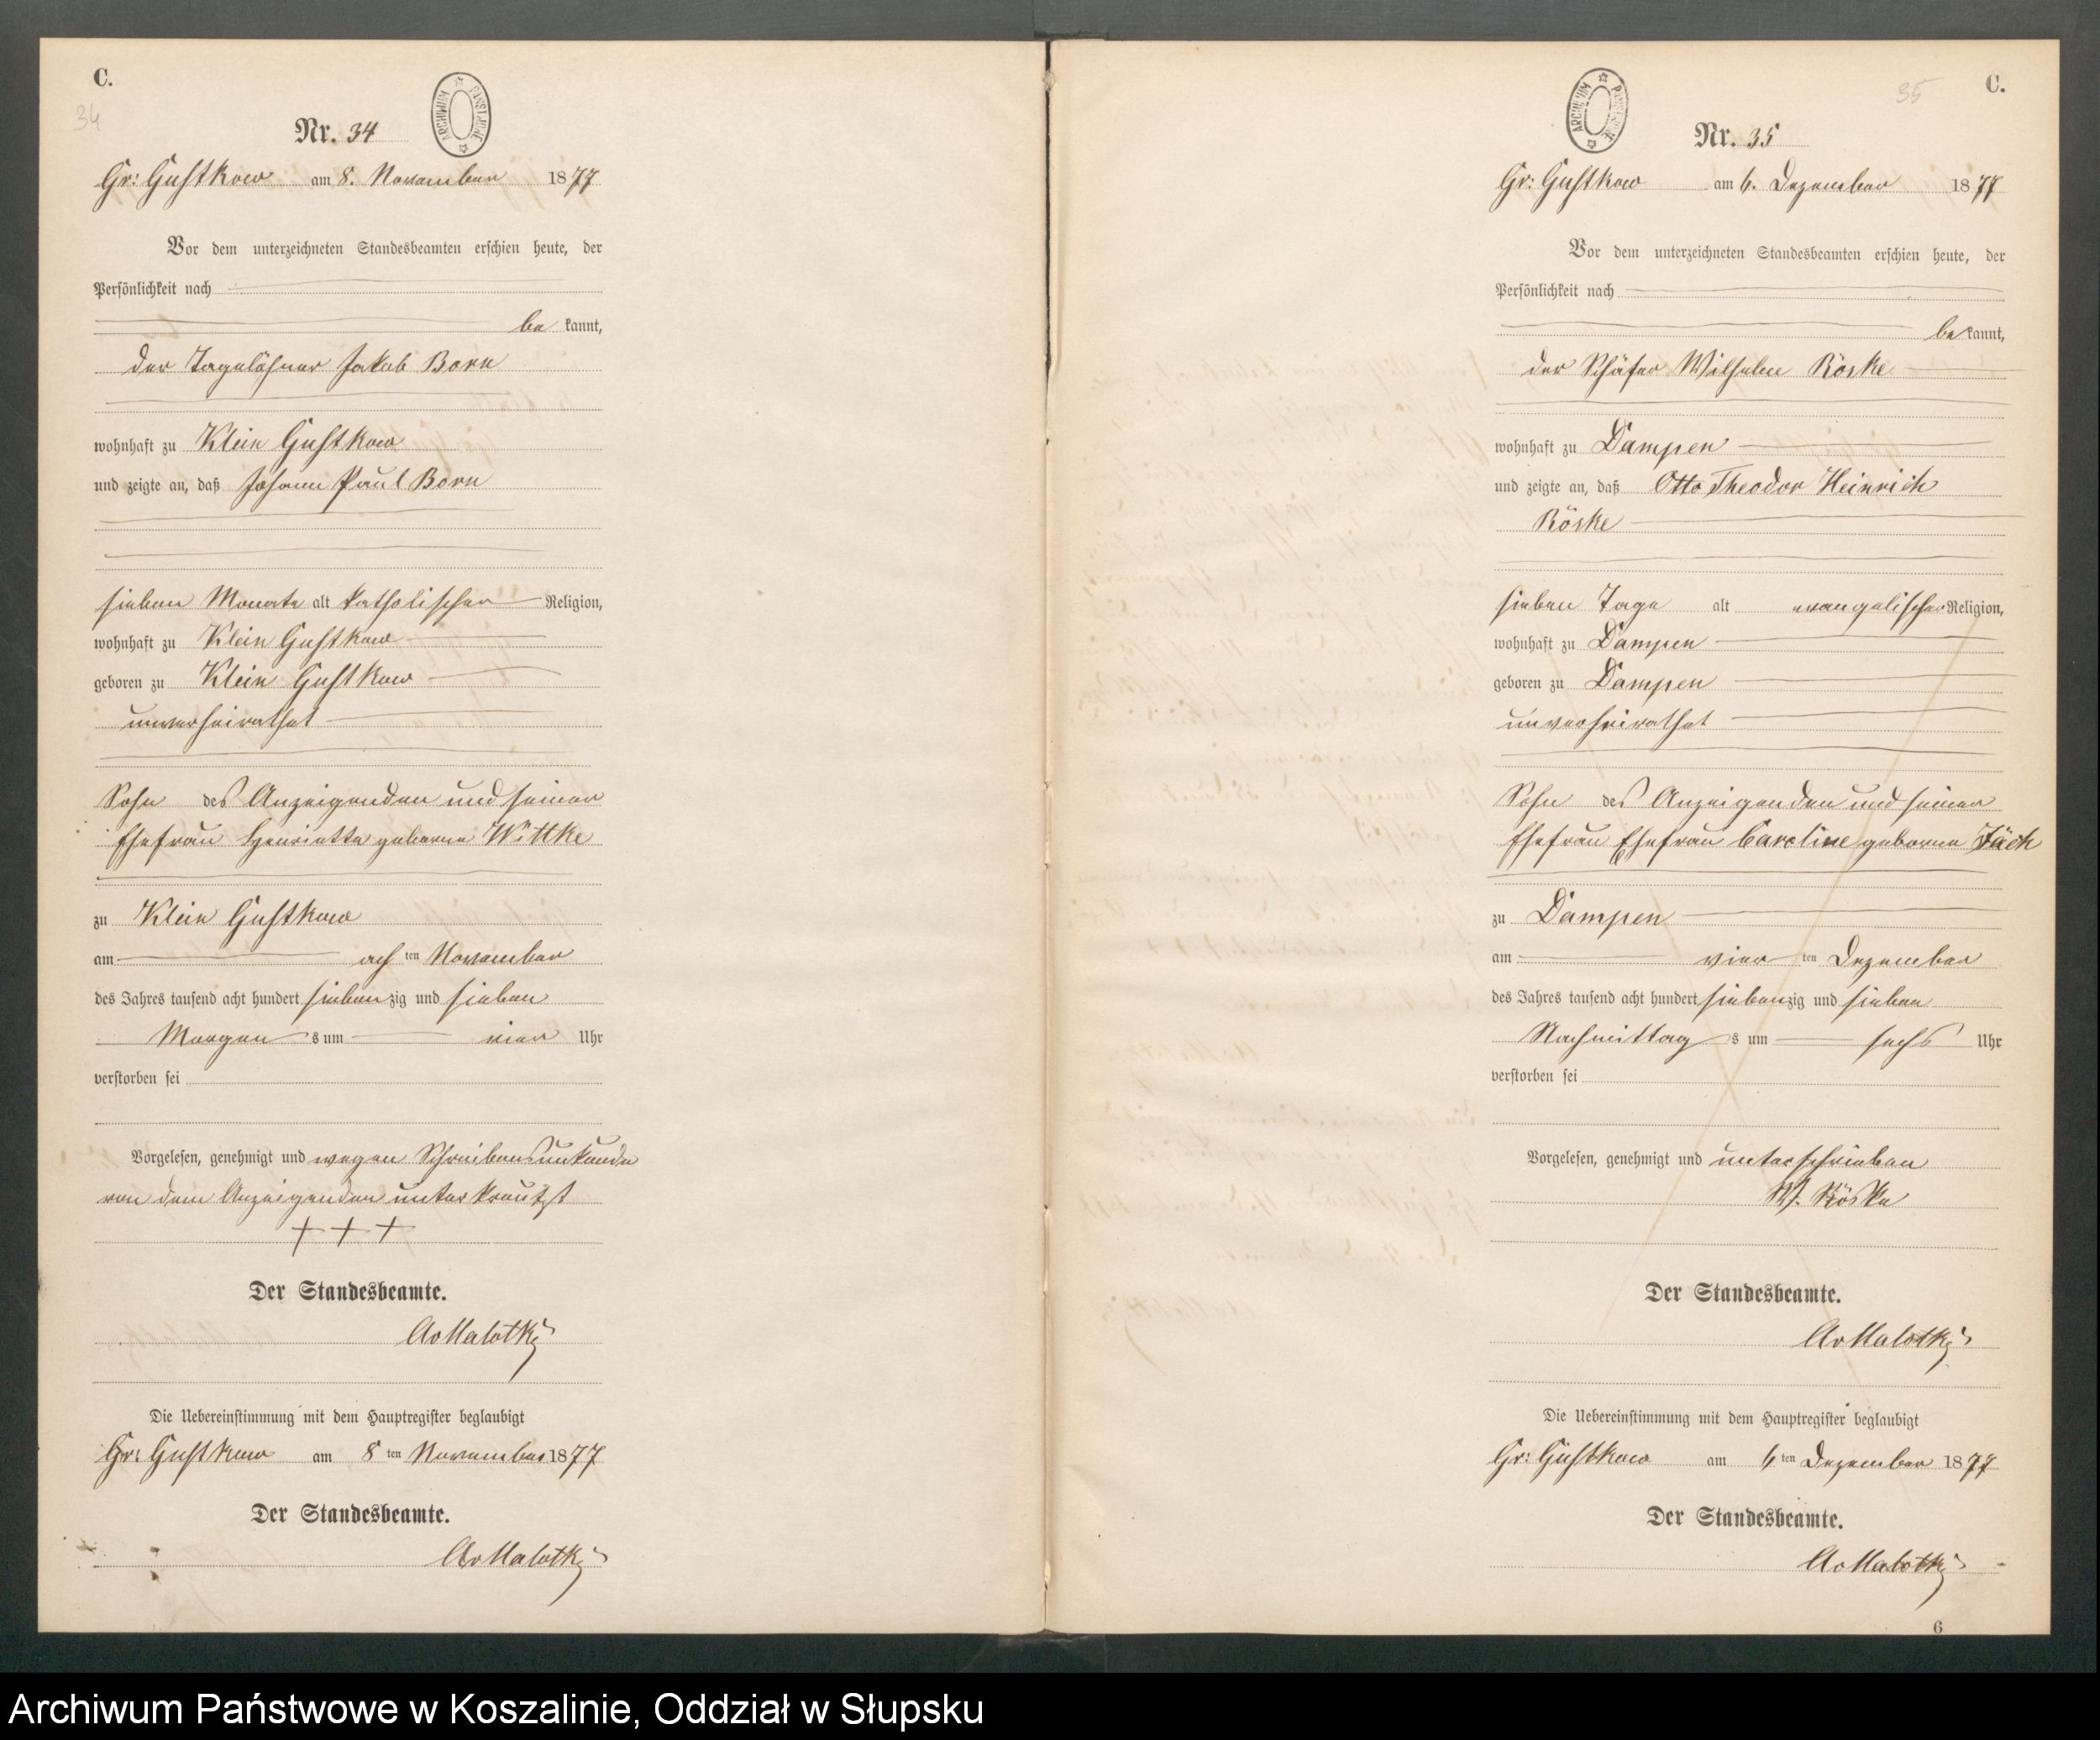 C.
34
Nr. 34
ARCHIWUM PAŃSTWOWE
Gr: Gustkow am 8. November 1877
Vor dem unterzeichneten Standesbeamten erschien heute, der
Persönlichkeit nach
be kannt,
der Tagelöhner Jakob Born
wohnhaft zu Klein Gustkow
und zeigte an, daß Johann Paul Born
sieben Monate alt katholischer Religion,
wohnhaft zu Klein Gustkow
geboren zu Klein Gustkow
unverheirathet
Sohn des Anzeigenden und seiner
Ehefrau Henriette geborne Wittke
zu Klein Gustkow
am ach ten November
des Jahres tausend acht hundert siebenzig und sieben
Morgen s um vier Uhr
verstorben sei
Vorgelesen, genehmigt und wegen Schreibensunkunde
von dem Anzeigenden unterkreutzt
+ + +
Der Standesbeamte.
AvMalotki
Die Uebereinstimmung mit dem Hauptregister beglaubigt
Gr: Gustkow am 8 ten November 1877
Der Standesbeamte.
AvMalotki
35
C.
ARCHIWUM PAŃSTWOWE
Nr. 35
Gr: Gustkow am 6. Dezember 1877
Vor dem unterzeichneten Standesbeamten erschien heute, der
Persönlichkeit nach
be kannt,
der Schäfer Wilhelm Röske
wohnhaft zu Dampen
und zeigte an, daß Otto Theodor Heinrich
Röske
sieben Tage alt evangelischer Religion,
wohnhaft zu Dampen
geboren zu Dampen
unverheirathet
Sohn des Anzeigenden und seiner
Ehefrau Ehefrau Caroline geborne Jäck
zu Dampen
am vier ten Dezember
des Jahres tausend acht hundert siebenzig und sieben
Nachmittag s um sechs Uhr
verstorben sei
Vorgelesen, genehmigt und unterschrieben
W. Röske
Der Standesbeamte.
AvMalotki
Die Uebereinstimmung mit dem Hauptregister beglaubigt
Gr: Gustkow am 6 ten Dezember 1877
Der Standesbeamte.
AvMalotki
6
Archiwum Państwowe w Koszalinie, Oddział w Słupsku